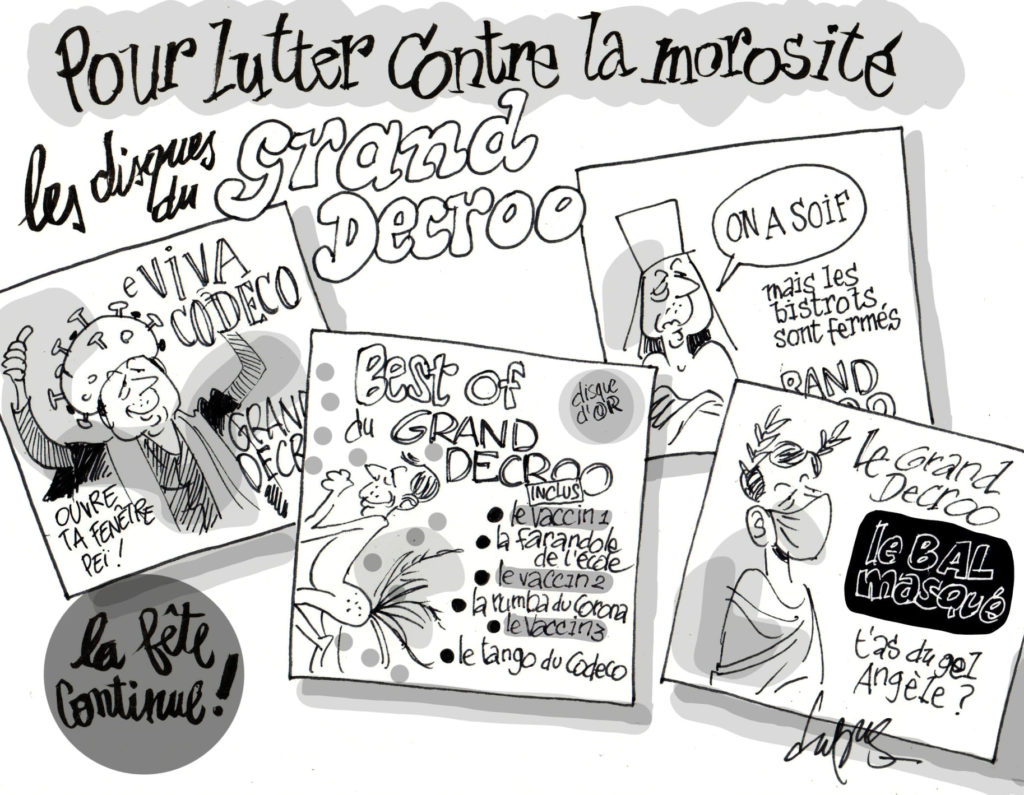 Pour lutter contre la morosité
les disques
du
Grand
Decroo
e VIVA
CODECO
GRAND
DECR
OUVRE
TA FENÊTRE
PEÏ !
ON A SOIF
mais les
bistrots
sont fermés
RAND
Best of
du GRAND
DECROO
disque
d'OR
INCLUS
● le vaccin 1
● la farandole
de l'école
● le vaccin 2
● la rumba du Corona
● le vaccin 3
● le tango du Codeco
le Grand
Decroo
le BAL
masqué
t'as du gel
Angèle ?
la fête
continue !
dubus